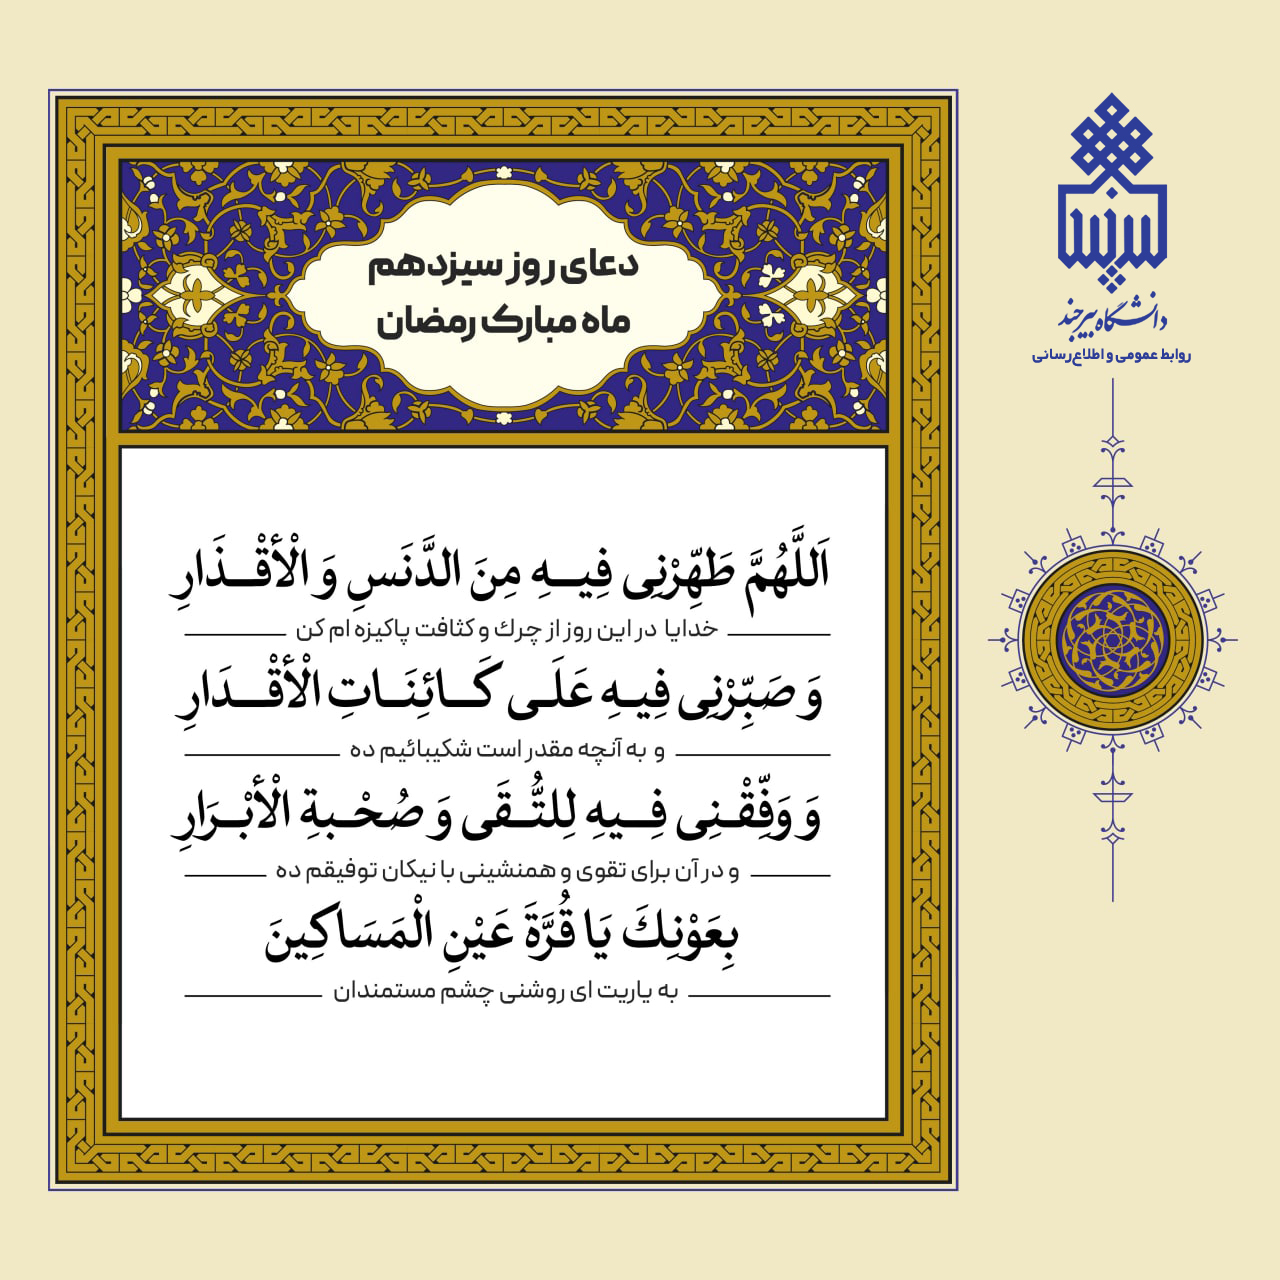 دعای روز سیزدهم
ماه مبارک رمضان
اَللَّهُمَّ طَهِّرْنِی فِیهِ مِنَ الدَّنَسِ وَ الْأَقْذَارِ
خدایا در این روز از چرك و كثافت پاكیزه ام كن
وَ صَبِّرْنِی فِیهِ عَلَی کَائِنَاتِ الْأَقْدَارِ
و به آنچه مقدر است شكیبائیم ده
وَ وَفِّقْنِی فِیهِ لِلتُّقَی وَ صُحْبةِ الْأَبْرَارِ
و در آن برای تقوی و همنشینی با نیكان توفیقم ده
بِعَوْنِكَ یَا قُرَّةَ عَیْنِ الْمَسَاکِینَ
به یاریت ای روشنی چشم مستمندان
دانشگاه بیرجند
روابط عمومی و اطلاع‌رسانی